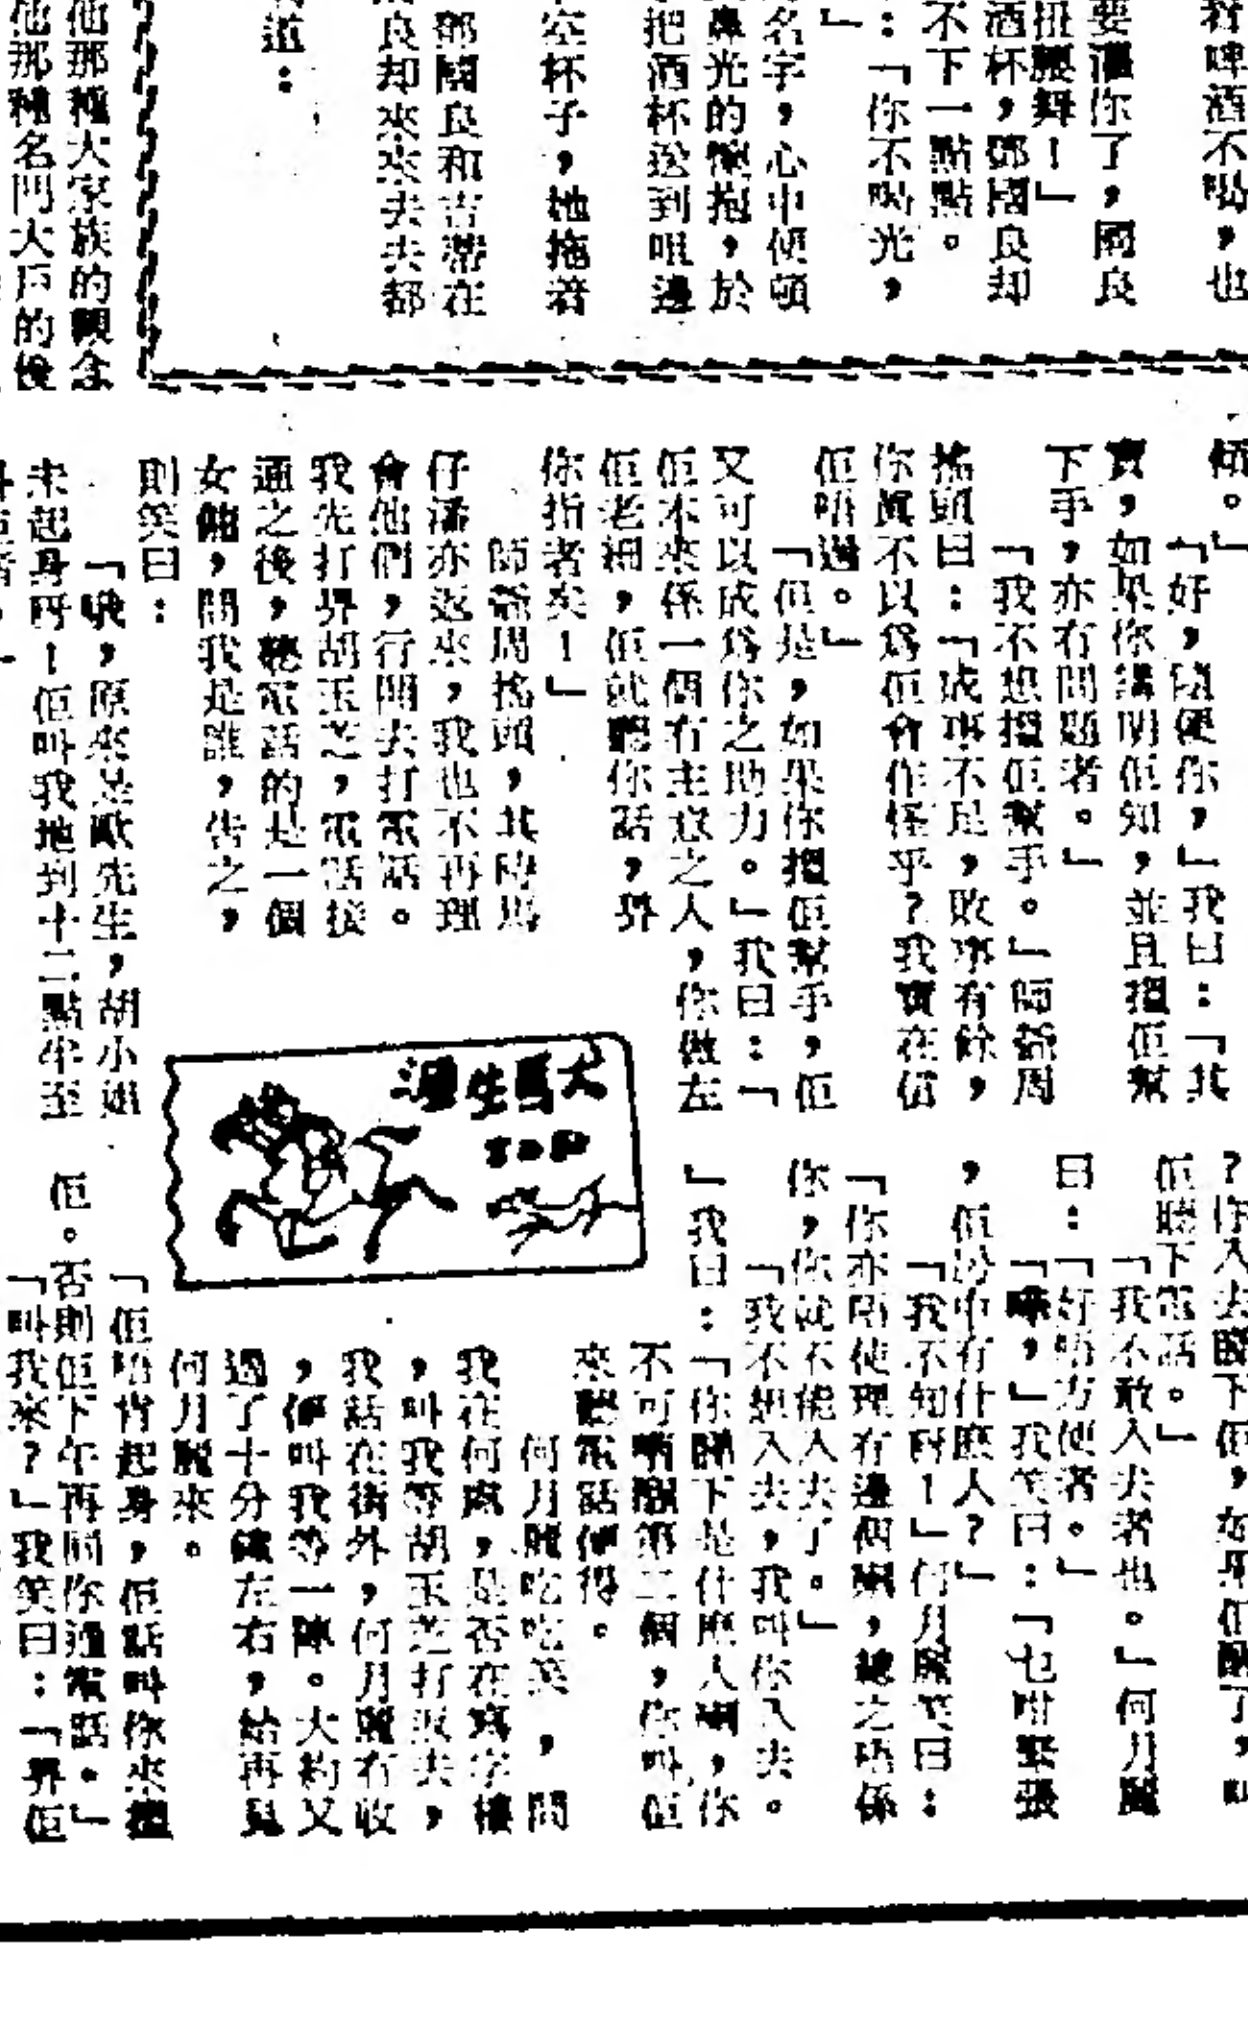 着啤酒不喝，也
要灌你了，國良
扭腰舞！」
酒杯，鄧國良却
不下一點點。
：「你不喝光，
」
名字，心中便頓
鼻光的懷抱，於
把酒杯送到咀邊
空杯子，她拖着
鄧國良和吉蒂在
良却來來去去都
道：
他那種大家族的觀念
他那種名門大戶的後
」
「好，隨便你，」我曰：「其
實，如果你講明佢知，並且搵佢幫
下手，亦冇問題者。」
「我不想搵佢幫手。」師爺周
搖頭曰：「成事不足，敗事有餘，
你眞不以爲佢會作怪乎？我實在信
佢唔過。」
「但是，如果你搵佢幫手，佢
又可以成爲你之助力。」我曰：「
佢不來係一個冇主意之人，你做左
佢老細，佢就聽你話，畀
你指者矣！」
師爺周搖頭，其時馬
仔潘亦返來，我也不再理
會他們，行開去打電話。
我先打畀胡玉芝，電話接
通之後，聽電話的是一個
女傭，問我是誰，告之，
則笑曰：
「哦，原來是歐先生，胡小姐
未起身呀！佢叫我地到十二點半至
犬馬生涯
？你入去睇下佢，如果佢醒了，叫
佢聽下電話。」
「我不敢入去者也。」何月麗
曰：「好唔方便者。」
「嘩，」我笑曰：「乜咁緊張
，佢房中有什麽人？」
「我不知呀！」何月麗笑曰：
「你亦唔使理有邊個喇，總之唔係
你，你就不能入去了。」
「我不想入去，我叫你入去。
」我曰：「你睇下是什麽人喇，你
不可嘈醒第二個，你叫佢
來聽電話便得。
何月麗吃吃笑，問
我在何處，是否在寫字樓
，叫我等胡玉芝打返去，
我話在街外，何月麗冇收
，便叫我等一陣。大約又
過了十分鐘左右，始再見
何月麗來。
「佢唔肯起身，佢話叫你來搵
佢。否則佢下午再同你通電話。」
「叫我來？」我笑曰：「畀佢